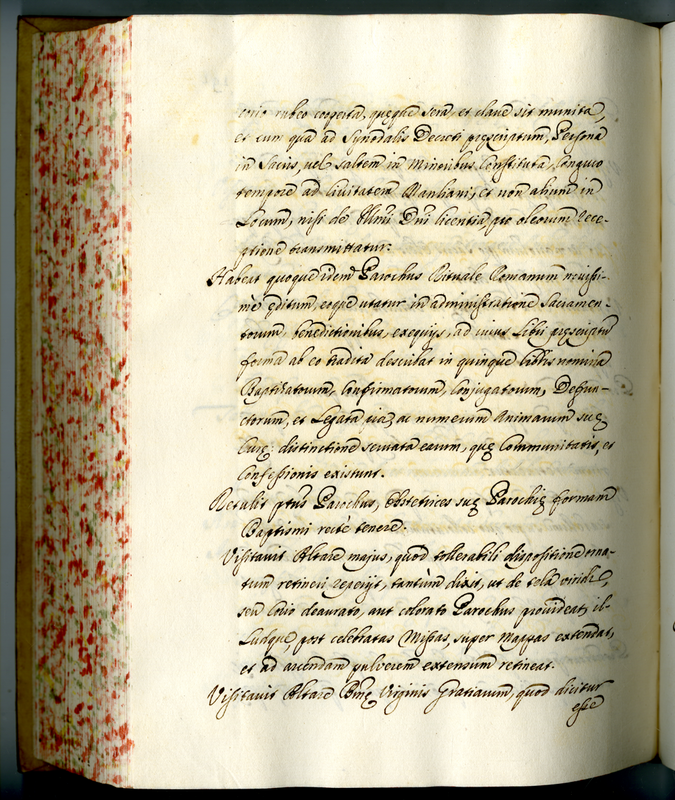 corio rubeo cooperta, queque sera, et clave sit munita,
et cum qua ad Synodalis Decreti prescriptum, Persona
in Sacris, vel saltem in Minoribus Constituta, Congruo
tempore ad Civitatem Manliani, et non alium in
Locum, nisi de Illmi Dni licentia, pro oleorum rece-
ptione transmittatur.
Habeat quoque idem Parochus Rituale Romanum novissi-
me editum, eoque utatur in administratione Sacramen-
torum, benedictionibus, exequijs, ad cuius Libri prescriptu
forma ab eo tradita describat in quinque libris nomina
Baptizatorum, Confirmatorum, Conjugatorum, Defun-
ctorum, et Legata ac numerum Animarum sue
Cure: distinctione servata earum, que Communitatis, et
Confessionis existunt.
Retulit ptus Parochus, Obstetrices sue Parochie formam
Baptismi recte tenere.
Visitavit Altare majus, quod tollerabili dispositione orna-
tum retineri reperijt, tantum dixit, ut de tela viridi,
seu Corio deaurato, aut colorato Parochus provideat, il-
ludque, post celebratas Missas, super Mappas extendat,
et ad arcendam pulverem extensum retineat.
Visitavit Altare Bme Virginis Gratiarum, quod dicitur
esse